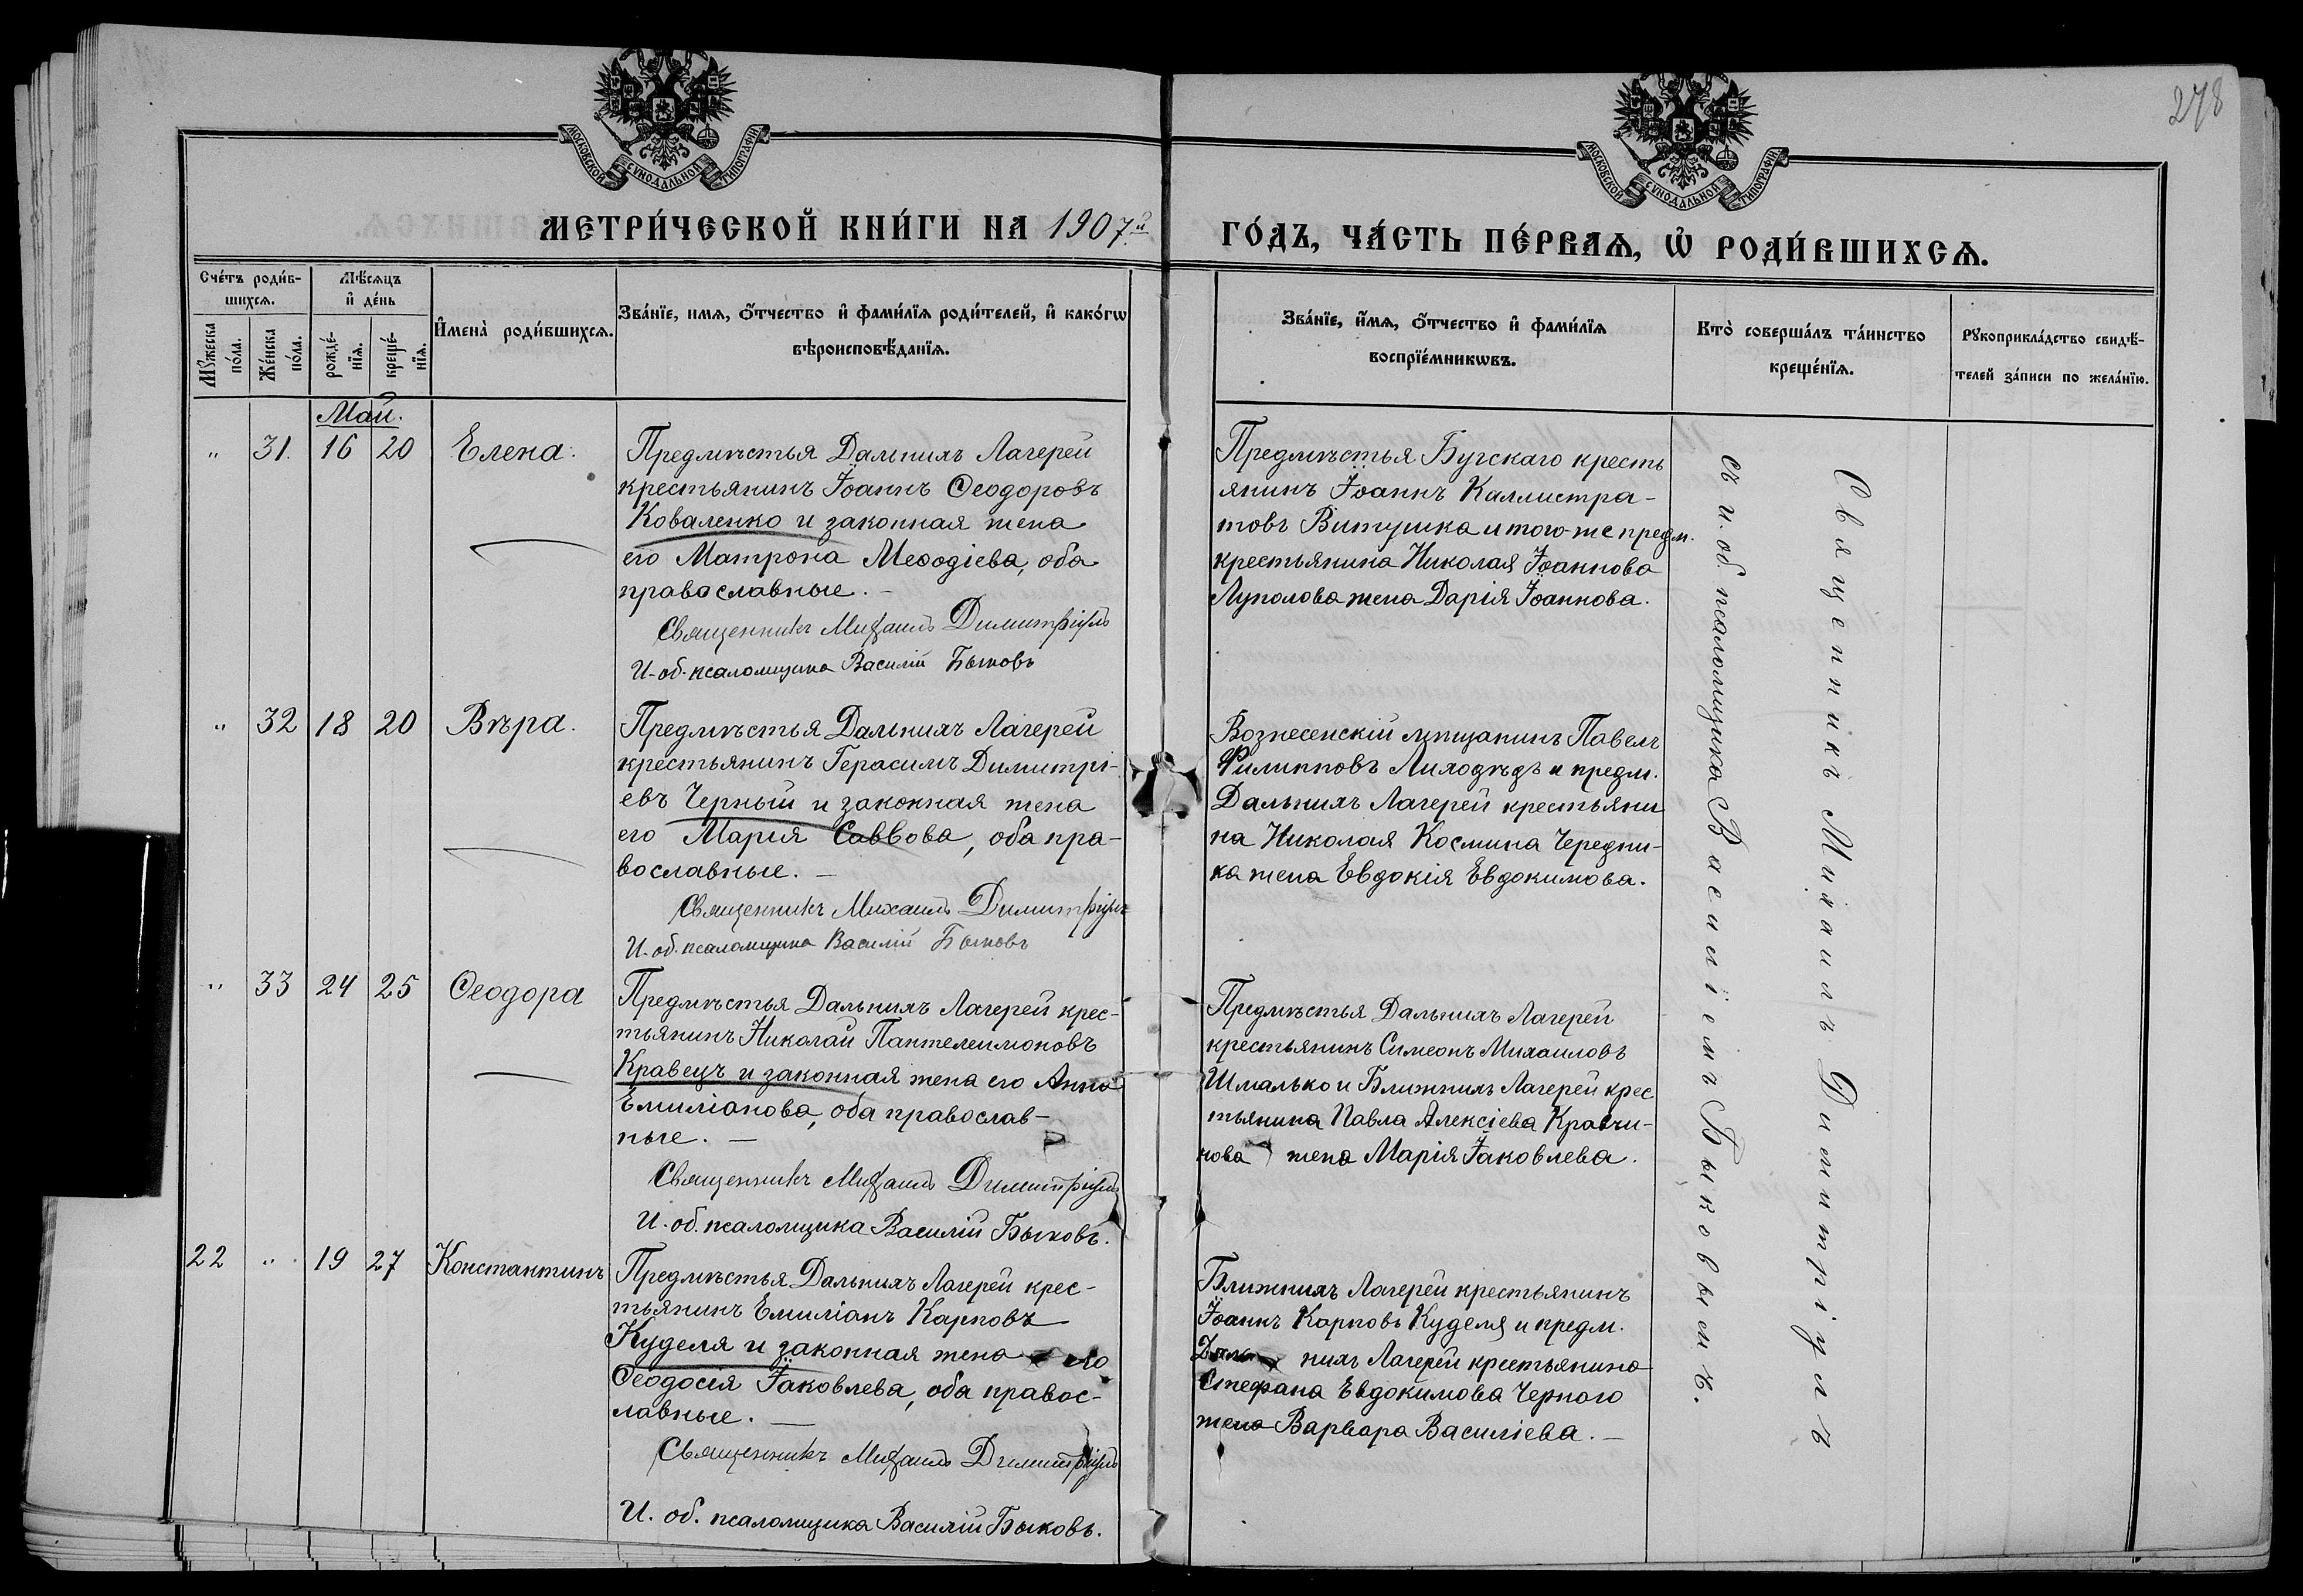 278
МОСКОВСКОЙ СѴНОДАЛЬНОЙ ТИПОГРАФІИ
МОСКОВСКОЙ СѴНОДАЛЬНОЙ ТИПОГРАФІИ
МЕТРИ́ЧЕСКОЙ КНИ́ГИ НА 1907й
ГО́ДЪ, ЧА́СТЬ ПЕ́РВАѦ, Ѽ РОДИ́ВШИХСѦ.
Сче́тъ роди́в-
шихсѧ.
Мѣ́сѧцъ
и҆ де́нь
И҆менà роди́вшихсѧ.
Зва́нїе, имѧ, ѻ҆́тчество и҆ фами́лїѧ роди́телей, и҆ како́гѡ
вѣроисповѣ́данїѧ.
Мꙋ́жеска
по́ла.
Же́нска
по́ла.
рожде́-
нїѧ.
креще́-
нїѧ.
Зва́нїе, и҆́мѧ, ѻ҆́тчество и҆ фами́лїѧ
воспрїе́мникѡвъ.
Кто̀ соверша́лъ та́инство
креще́нїѧ.
Рꙋкоприкла́дство свидѣ́-
телей за́писи по жела́нїю.
Май.
" 31. 16 20 Елена.
Предмѣстья Дальнихъ Лагерей
крестьянинъ Іоаннъ Ѳеодоровъ
Коваленко и законная жена
его Матрона Меѳодіева, оба
православные. –
Священникъ Михаилъ Димитріулъ
И. об. псаломщика Василій Быковъ
Предмѣстья Бугскаго кресть
янинъ Іоаннъ Каллистра-
товъ Витушка и того-же предм.
крестьянина Николая Іоаннова
Луполова жена Дарія Іоаннова.
" 32 18 20 Вѣра.
Предмѣстья Дальнихъ Лагерей
крестьянинъ Герасимъ Димитрі-
евъ Черный и законная жена
его Марія Саввова, оба пра-
вославные. –
Священникъ Михаилъ Димитріулъ
И. об. псаломщика Василій Быковъ
Вознесенскій мѣщанинъ Павелъ
Филипповъ Лиходѣдъ и предм.
Дальнихъ Лагерей крестьяни
на Николая Космина Чередни-
ка жена Евдокія Евдокимова.
" 33 24 25 Ѳеодора
Предмѣстья Дальнихъ Лагерей крес-
тьянинъ Николай Пантелеимоновъ
Кравецъ и законная жена его Анна
Емиліанова, оба православ-
ные. –
Священникъ Михаилъ Димитріулъ
И. об. псаломщика Василій Быковъ.
Предмѣстья Дальнихъ Лагерей
крестьянинъ Симеонъ Михаиловъ
Шмалько и Ближнихъ Лагерей крес
тьянина Павла Алексіева Кравчи-
нова жена Марія Іаковлева.
22 " 19 27 Константинъ
Предмѣстья Дальнихъ Лагерей крес-
тьянинъ Емиліанъ Карповъ
Куделя и законная жена его
Ѳеодосія Іаковлева, оба правос-
лавные. –
Священникъ Михаилъ Димитріулъ
И. об. псаломщика Василій Быковъ.
Ближнихъ Лагерей крестьянинъ
Іоаннъ Карповъ Куделя и предм.
Даль нихъ Лагерей крестьянина
Стефана Евдокимова Черного
жена Варвара Василіева. –
Священникъ Михаилъ Димитріулъ
съ и. об. псаломщика Василіемъ Быковымъ.